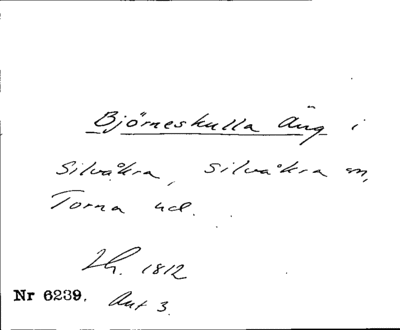 Björneskulla Äng i
Silvåkra, Silvåkra sn,
Torna hd.
Lh. 1812
Nr 6239. Akt 3.